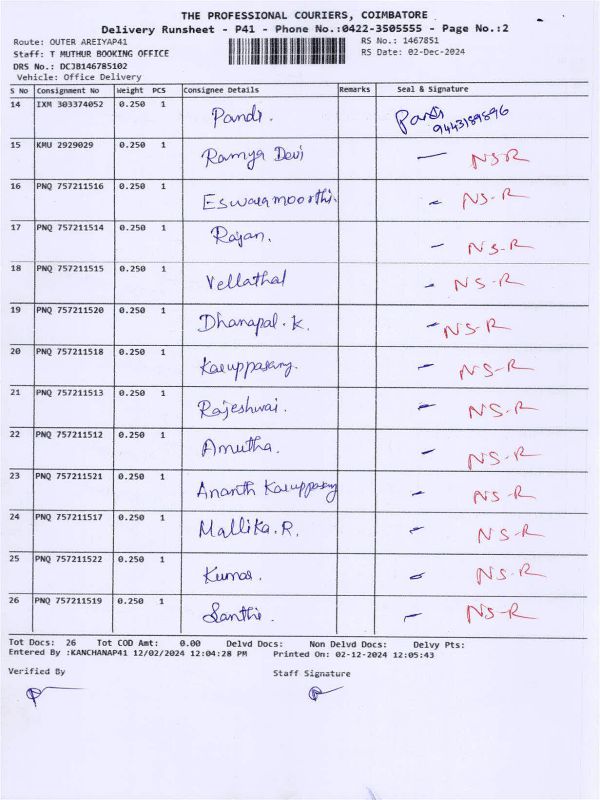 THE PROFESSIONAL COURIERS, COIMBATORE
Delivery Runsheet - P41 - Phone No.:0422-3505555 - Page No.:2
Route: OUTER AREIYAP41 RS No.: 1467851
Staff: T MUTHUR BOOKING OFFICE RS Date: 02-Dec-2024
DRS No.: DCJB146785102
Vehicle: Office Delivery
S No Consignment No Weight PCS Consignee Details Remarks Seal & Signature
14 IXM 303374052 0.250 1 Pandi. Pandi
9443189896
15 KMU 2929029 0.250 1 Ramya Devi — NS-R
16 PNQ 757211516 0.250 1 Eswaramoorthi. - NS-R
17 PNQ 757211514 0.250 1 Rajan. - NS-R
18 PNQ 757211515 0.250 1 Vellathal - NS-R
19 PNQ 757211520 0.250 1 Dhanapal.K. - NS-R
20 PNQ 757211518 0.250 1 Karuppasamy. - NS-R
21 PNQ 757211513 0.250 1 Rajeshwai. - NS-R
22 PNQ 757211512 0.250 1 Amutha. - NS-R
23 PNQ 757211521 0.250 1 Ananth Karuppasamy - NS-R
24 PNQ 757211517 0.250 1 Mallika.R. - NS-R
25 PNQ 757211522 0.250 1 Kumar. - NS-R
26 PNQ 757211519 0.250 1 Santhi. - NS-R
Tot Docs: 26 Tot COD Amt: 0.00 Delvd Docs: Non Delvd Docs: Delvy Pts:
Entered By :KANCHANAP41 12/02/2024 12:04:28 PM Printed On: 02-12-2024 12:05:43
Verified By Staff Signature